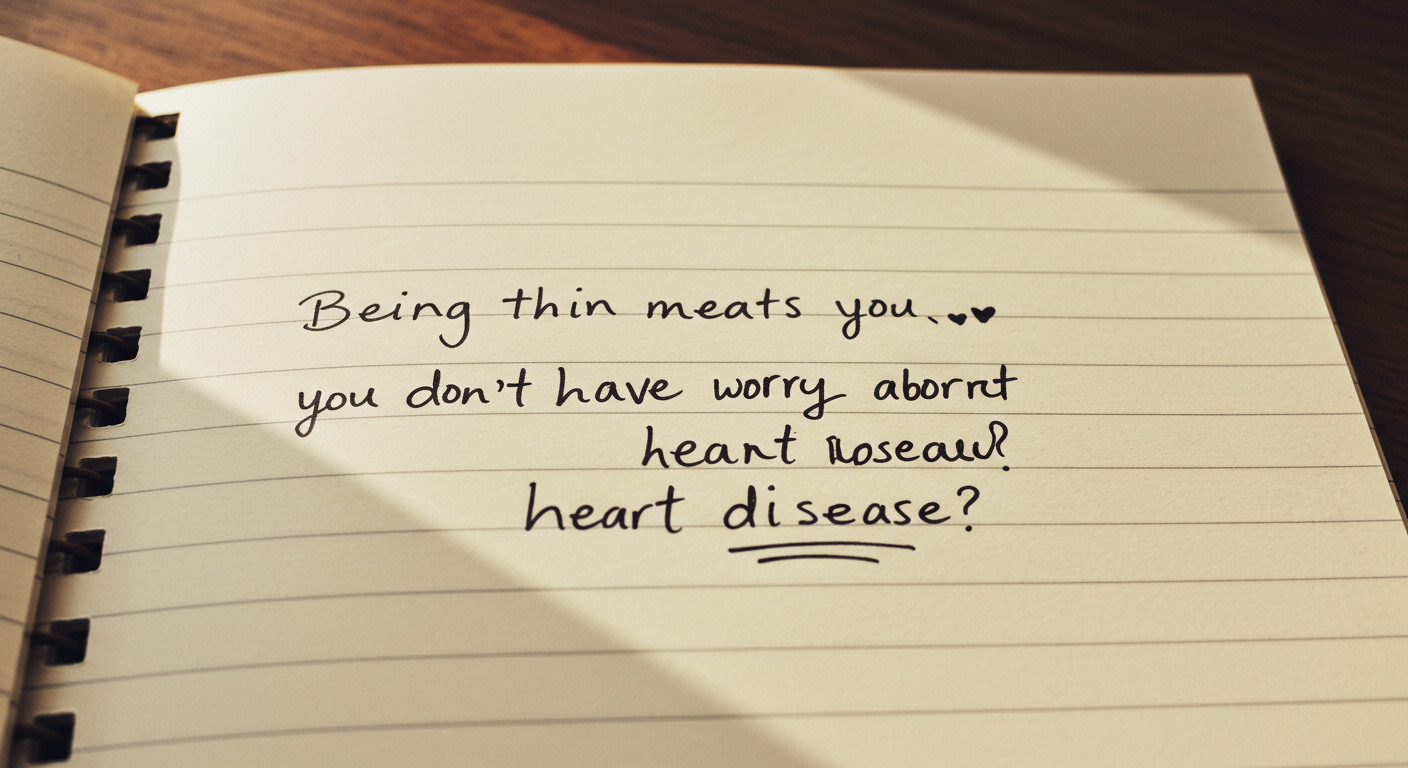 Being thin meats you.
you don't have worry abornt
heant
heart disease?